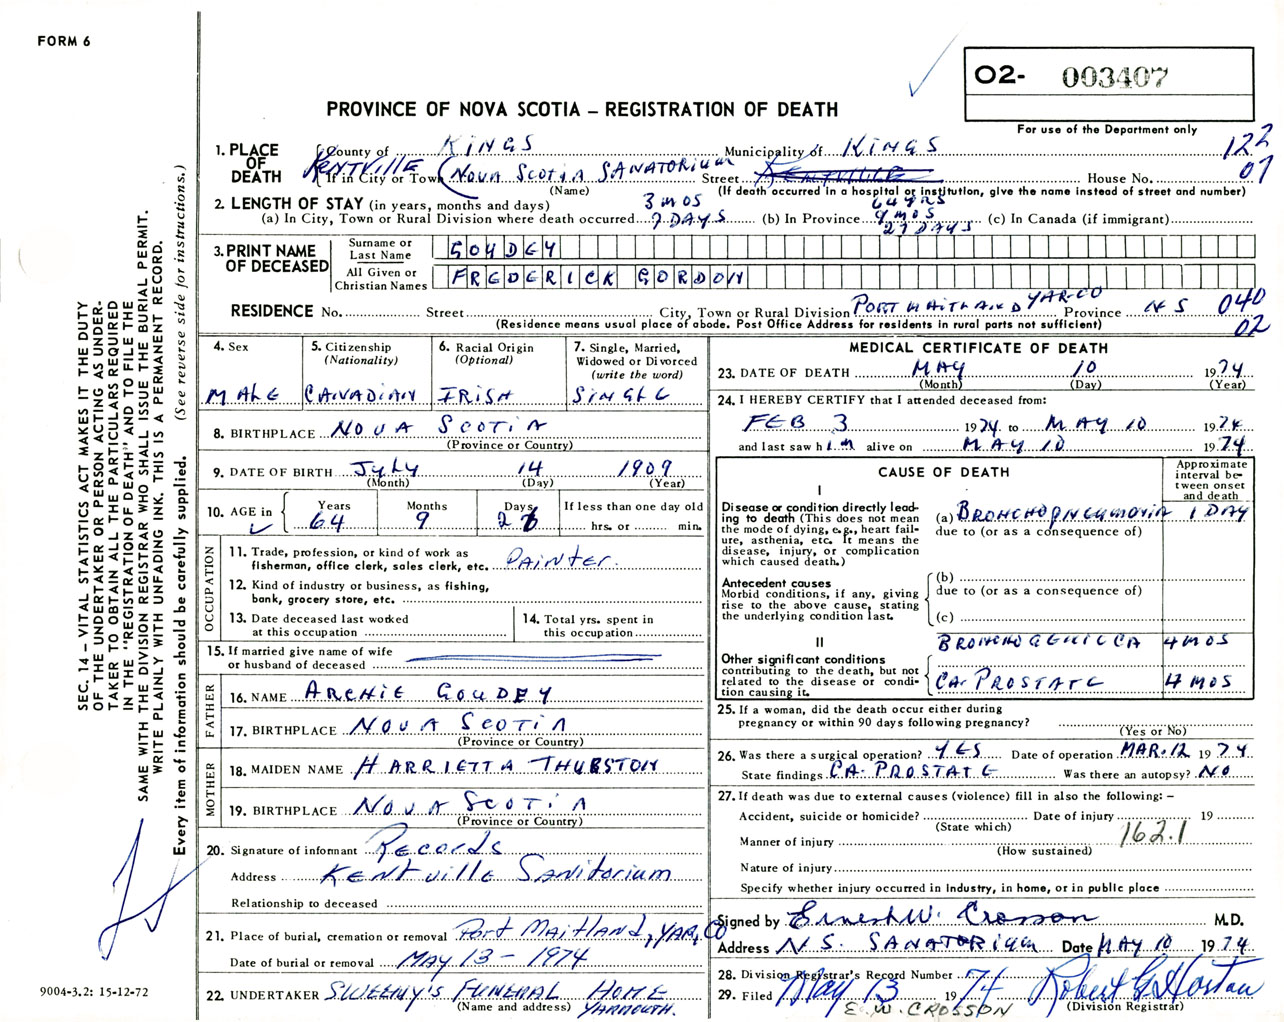 FORM 6
O2- 003407
PROVINCE OF NOVA SCOTIA – REGISTRATION OF DEATH
For use of the Department only
1. PLACE OF DEATH
County of KINGS Municipality of KINGS 122
KENTVILLE (If in City or Town (NOVA SCOTIA SANATORIUM Street KENTVILLE House No. 07
(Name) (If death occurred in a hospital or institution, give the name instead of street and number)
2. LENGTH OF STAY (in years, months and days) 3 MOS 64 YRS
(a) In City, Town or Rural Division where death occurred 7 DAYS (b) In Province 9 MOS (c) In Canada (if immigrant)
27 DAYS
3. PRINT NAME OF DECEASED
Surname or Last Name GOUDEY
All Given or Christian Names FREDERICK GORDON
RESIDENCE No. Street City, Town or Rural Division PORT MAITLAND YAR-CO Province NS 040
(Residence means usual place of abode. Post Office Address for residents in rural parts not sufficient) 02
4. Sex
MALE
5. Citizenship (Nationality)
CANADIAN
6. Racial Origin (Optional)
IRISH
7. Single, Married, Widowed or Divorced (write the word)
SINGLE
8. BIRTHPLACE NOVA SCOTIA
(Province or Country)
9. DATE OF BIRTH JULY 14 1909
(Month) (Day) (Year)
10. AGE in Years Months Days If less than one day old
64 9 26 hrs. or min.
OCCUPATION
11. Trade, profession, or kind of work as
fisherman, office clerk, sales clerk, etc. PAINTER.
12. Kind of industry or business, as fishing,
bank, grocery store, etc.
13. Date deceased last worked
at this occupation
14. Total yrs. spent in
this occupation
15. If married give name of wife
or husband of deceased
FATHER
16. NAME ARCHIE GOUDEY
17. BIRTHPLACE NOVA SCOTIA
(Province or Country)
MOTHER
18. MAIDEN NAME HARRIETTA THURSTON
19. BIRTHPLACE NOVA SCOTIA
(Province or Country)
20. Signature of informant Records
Address Kentville Sanitorium
Relationship to deceased
21. Place of burial, cremation or removal Port Maitland, YAR, CO
Date of burial or removal MAY 13 – 1974
22. UNDERTAKER SWEENY'S FUNERAL HOME
(Name and address) YARMOUTH.
MEDICAL CERTIFICATE OF DEATH
23. DATE OF DEATH MAY 10 1974
(Month) (Day) (Year)
24. I HEREBY CERTIFY that I attended deceased from:
FEB 3 1974 to MAY 10 1974
and last saw him alive on MAY 10 1974
CAUSE OF DEATH
Approximate interval between onset and death
I
Disease or condition directly leading to death (This does not mean the mode of dying, e.g., heart failure, asthenia, etc. It means the disease, injury, or complication which caused death.)
(a) BRONCHOPNEUMONIA 1 DAY
due to (or as a consequence of)
Antecedent causes
Morbid conditions, if any, giving rise to the above cause, stating the underlying condition last.
(b)
due to (or as a consequence of)
(c)
II
Other significant conditions contributing to the death, but not related to the disease or condition causing it.
BRONCHOGENIC CA 4 MOS
CA. PROSTATE 4 MOS
25. If a woman, did the death occur either during
pregnancy or within 90 days following pregnancy?
(Yes or No)
26. Was there a surgical operation? YES Date of operation MAR. 12 1974
State findings CA. PROSTATE Was there an autopsy? NO
27. If death was due to external causes (violence) fill in also the following: –
Accident, suicide or homicide? Date of injury 19
(State which)
Manner of injury 162.1
(How sustained)
Nature of injury
Specify whether injury occurred in industry, in home, or in public place
Signed by Ernest W. Crosson M.D.
Address N.S. SANATORIUM Date MAY 10 1974
28. Division Registrar's Record Number
29. Filed May 13 1974 Robert G. Horton
E. W. CROSSON (Division Registrar)
SEC. 14 – VITAL STATISTICS ACT MAKES IT THE DUTY
OF THE UNDERTAKER OR PERSON ACTING AS UNDER-
TAKER TO OBTAIN ALL THE PARTICULARS REQUIRED
IN THE "REGISTRATION OF DEATH" AND TO FILE THE
SAME WITH THE DIVISION REGISTRAR WHO SHALL ISSUE THE BURIAL PERMIT.
WRITE PLAINLY WITH UNFADING INK. THIS IS A PERMANENT RECORD.
Every item of information should be carefully supplied. (See reverse side for instructions.)
9004-3.2: 15-12-72